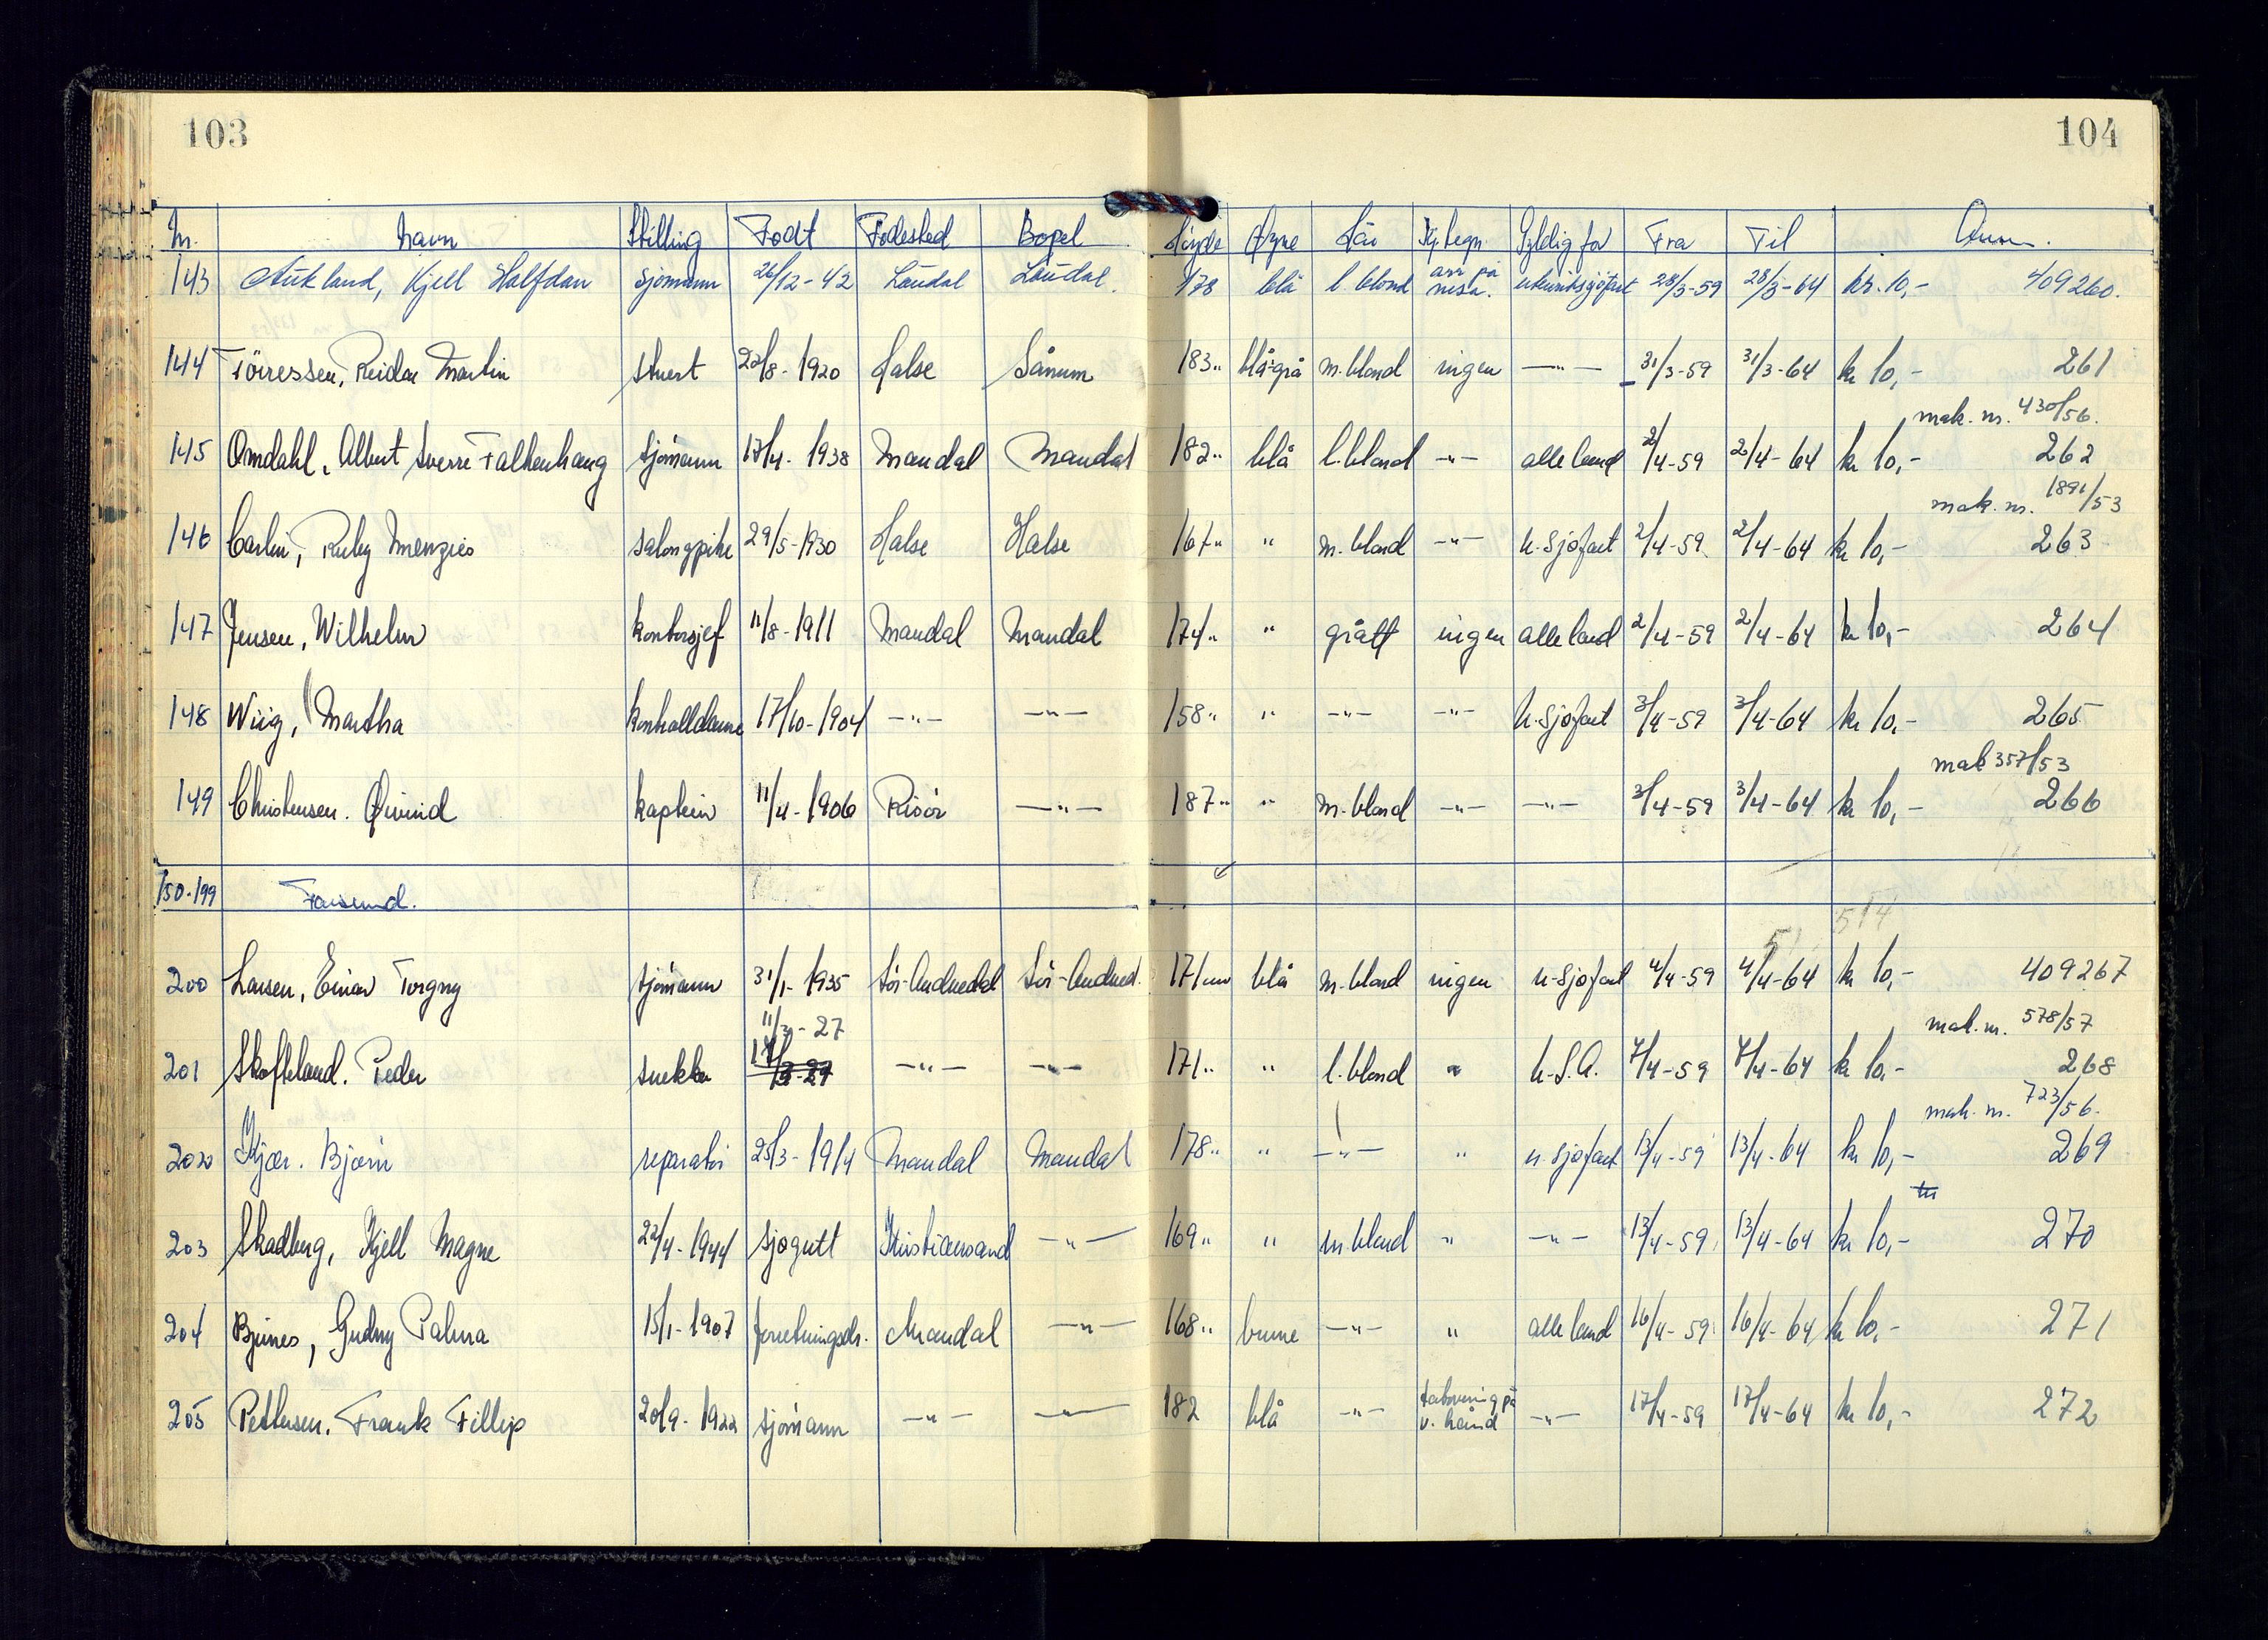 103
104
Nr. Navn Stilling Født Fødested Bopel Høyde Øyne Hår Kj.tegn. Gyldig for Fra Til Anm.
143 Aukland, Kjell Halfdan sjømann 26/12-42 Laudal Laudal. 178 blå l. blond arr på nesa. utenriksjøfart 28/3-59 28/3-64 kr. 10,- 409260.
144 Töiressen, Reidar Martin stuert 22/8-1920 Halse Sånum 183" blå-grå m. blond ingen —"— 31/3-59 31/3-64 kr 10,- 261
mak. nr. 430/56.
145 Omdahl, Albert Sverre Falkenhaug sjömann 17/4-1938 Mandal Mandal 182" blå l. blond -"- alle land 2/4-59 2/4-64 kr 10,- 262
mak. nr. 1891/53
146 Carlin, Ruby Menzies salongpike 29/5-1930 Halse Halse 167" " m. blond -"- u-sjøfart 2/4-59 2/4-64 kr 10,- 263
147 Jensen, Wilhelm kontorsjef 11/8-1911 Mandal Mandal 174" " grått ingen alle land 2/4-59 2/4-64 kr 10,- 264
148 Wiig, Martha kontrolldame 17/10-1904 -"- -"- 158" " -"- -"- u-sjøfart 3/4-59 3/4-64 kr 10,- 265
mak 357/53
149 Christensen. Øivind kaptein 11/4-1906 Risör —"— 187" " m. blond -"- -"- 3/4-59 3/4-64 kr 10,- 266
150-199 Farsund.
514
200 Larsen, Einar Torgny sjömann 31/1-1935 Sör-Audnedal Sör-Audned. 171cm blå m. blond ingen u-sjøfart 4/4-59 4/4-64 kr 10,- 409267
11/3-27
mak. nr. 578/57
201 Skofteland. Peder snekker -"- -"- 171" " l. blond " U.S.A. 7/4-59 7/4-64 kr 10,- 268
mak. nr. 723/56.
202 Kjær. Bjørn reparatör 25/3-1914 Mandal Mandal 178" " -"- " u-sjøfart 13/4-59 13/4-64 kr 10,- 269
203 Skadberg, Kjell Magne 22/4-1944 sjøgutt Kristiansand -"- 169" " m. blond " -"- 13/4-59 13/4-64 kr 10,- 270
204 Bjunes, Gudny Palma 15/1-1907 forretningsdr. Mandal -"- 168" brune -"- " alle land 16/4-59 16/4-64 kr 10,- 271
205 Pettersen. Frank Fillip 20/9-1922 sjömann -"- -"- 182 blå -"- tatovering på v. hånd -"- 17/4-59 17/4-64 kr 10,- 272